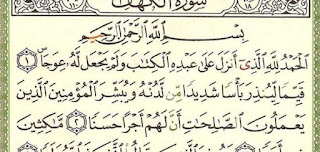 سُورَةُ الْكَهْفِ
بِسْمِ اللَّهِ الرَّحْمَٰنِ الرَّحِيمِ
الْحَمْدُ لِلَّهِ الَّذِي أَنْزَلَ عَلَىٰ عَبْدِهِ الْكِتَابَ وَلَمْ يَجْعَلْ لَهُ عِوَجًا ۜ ١
قَيِّمًا لِيُنْذِرَ بَأْسًا شَدِيدًا مِنْ لَدُنْهُ وَيُبَشِّرَ الْمُؤْمِنِينَ الَّذِينَ
يَعْمَلُونَ الصَّالِحَاتِ أَنَّ لَهُمْ أَجْرًا حَسَنًا ٢ مَاكِثِينَ